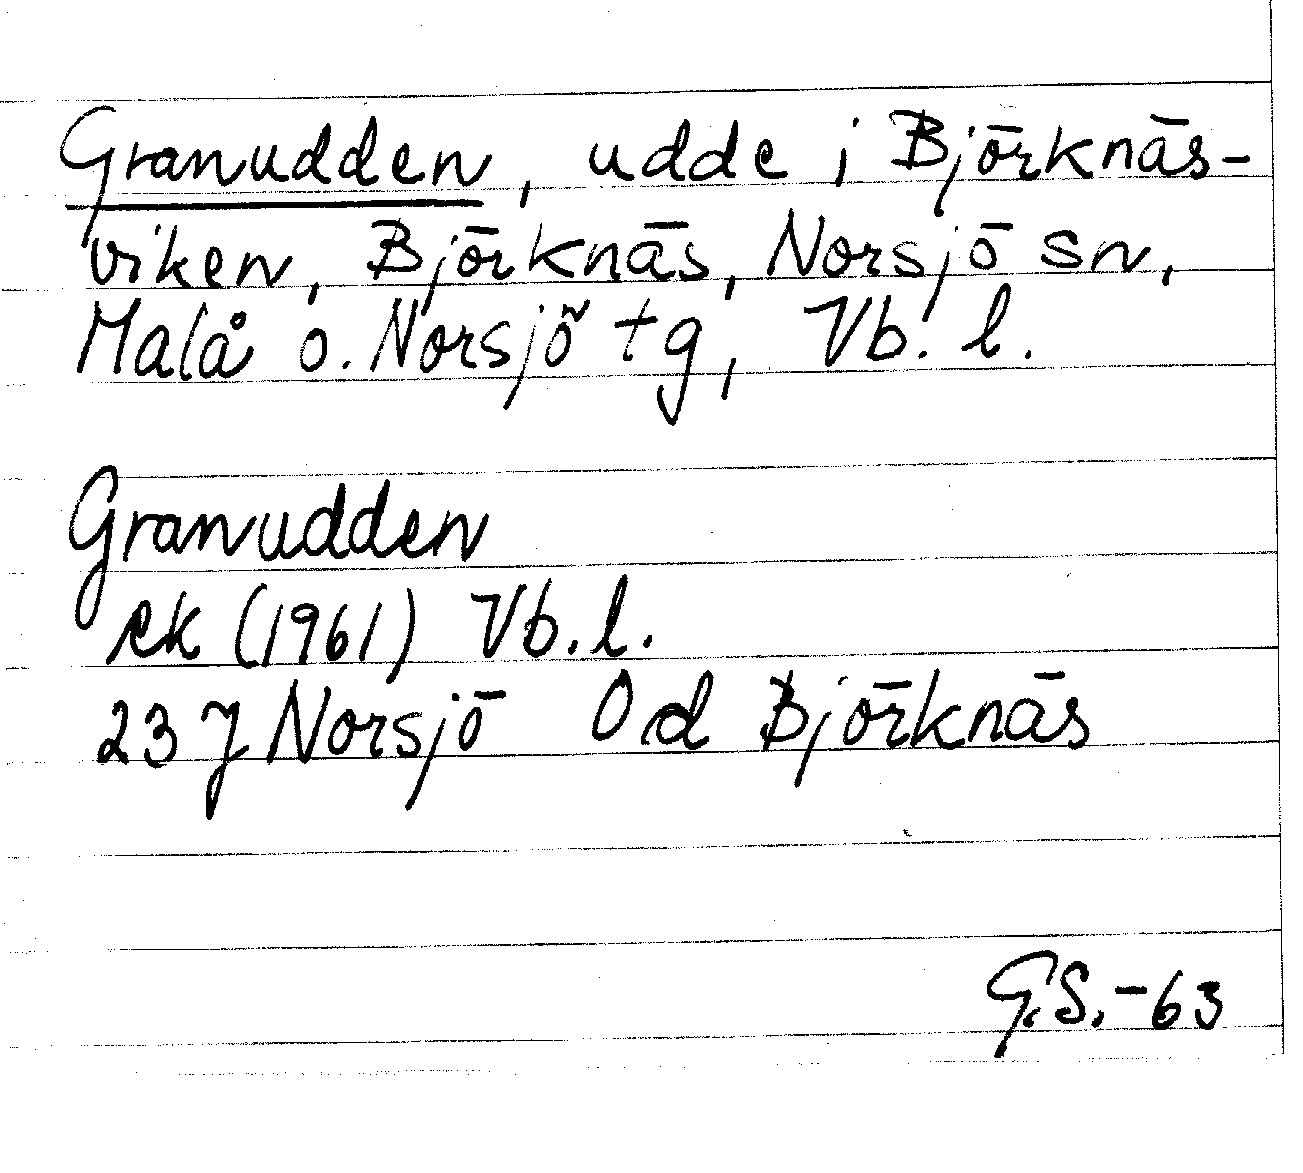 Granudden, udde i Björknäs-
viken, Björknäs, Norsjö sn,
Malå o. Norsjö tg, Vb. l.
Granudden
ek (1961) Vb. l.
23 J Norsjö Od Björknäs
G.S. -63